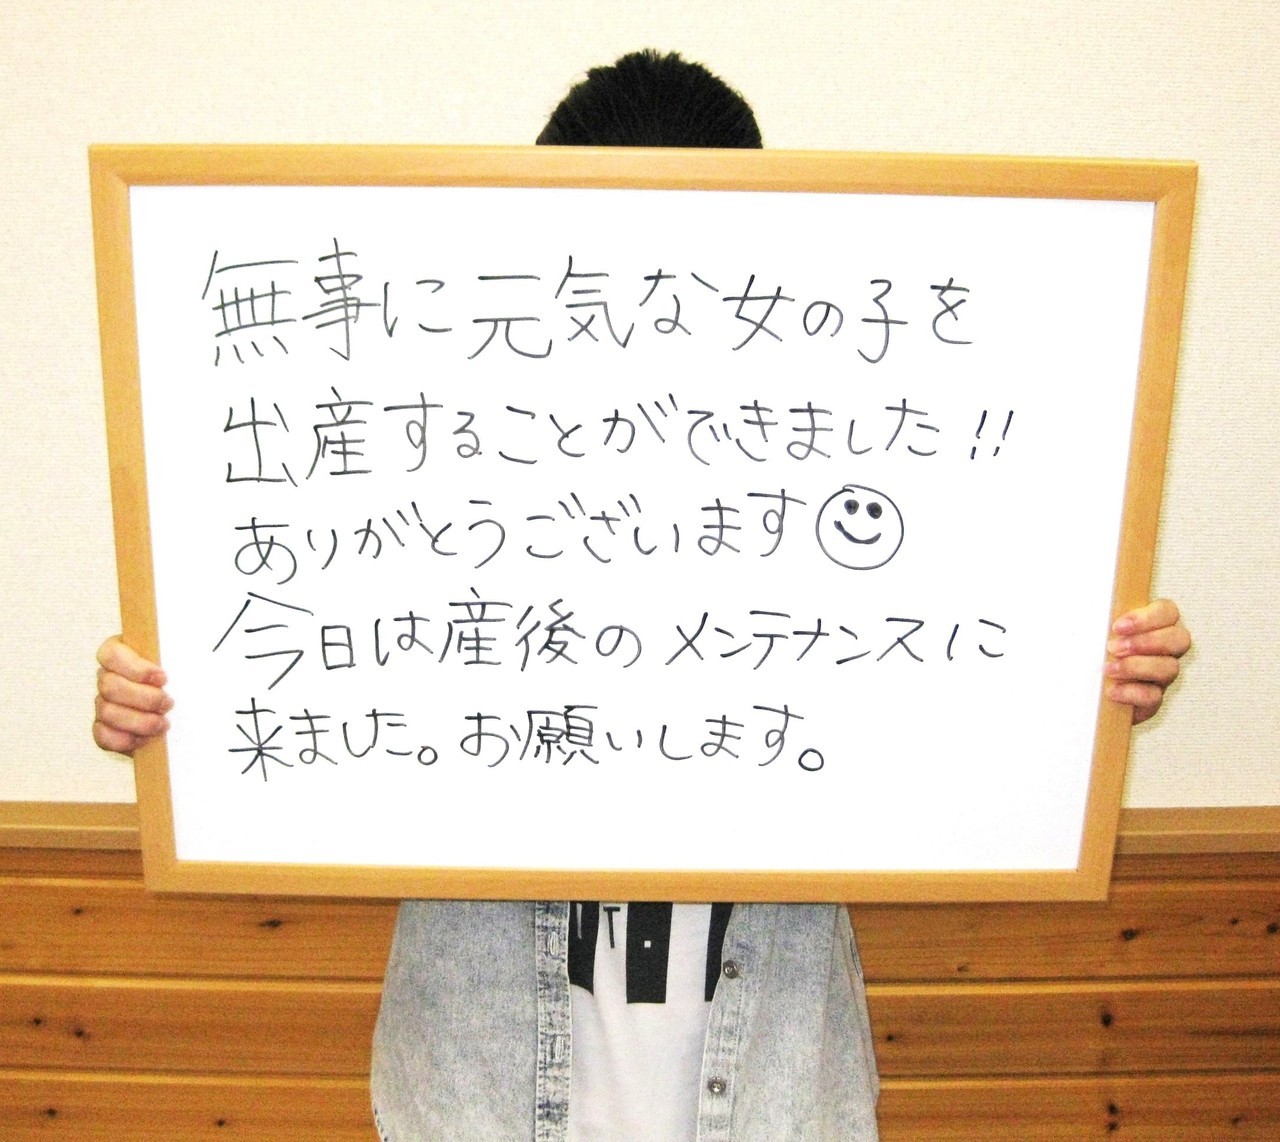 無事に元気な女の子を
出産することができました!!
ありがとうございます
今日は産後のメンテナンスに
来ました。お願いします。
T.